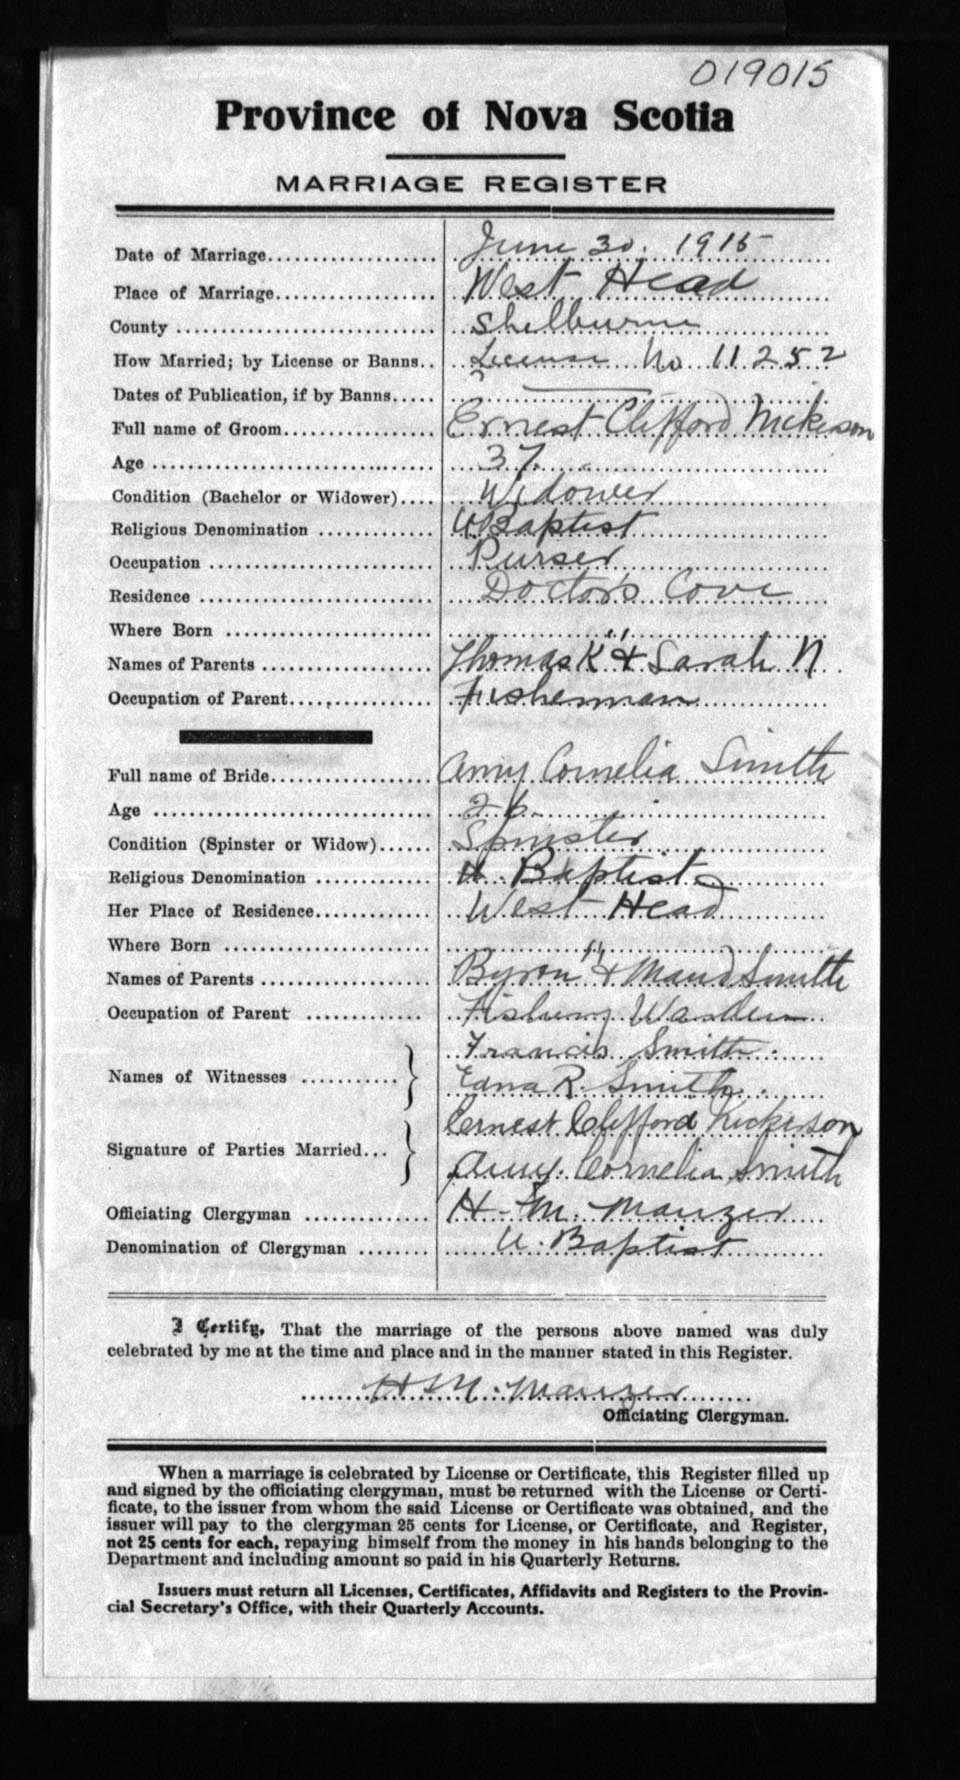 019015
Province of Nova Scotia
MARRIAGE REGISTER
Date of Marriage................... June 30. 1915
Place of Marriage.................. West Head
County ............................ Shelburne
How Married; by License or Banns.. License No 11252
Dates of Publication, if by Banns.....
Full name of Groom................. Ernest Clifford Nickerson
Age ............................... 37
Condition (Bachelor or Widower).... Widower
Religious Denomination ............. U Baptist
Occupation ......................... Purser
Residence .......................... Doctor's Cove
Where Born ........................ " "
Names of Parents .................. Thomas K & Sarah N
Occupation of Parent............... Fisherman
Full name of Bride................. Amy Cornelia Smith
Age ............................... 26
Condition (Spinster or Widow)...... Spinster
Religious Denomination ............ U. Baptist
Her Place of Residence............. West Head
Where Born ........................ " "
Names of Parents .................. Byron & Maud Smith
Occupation of Parent ............. Fishery Warden
Names of Witnesses ........... Francis Smith
Edna R. Smith
Signature of Parties Married... Ernest Clifford Nickerson
Amy Cornelia Smith
Officiating Clergyman ............. H. M. Manzer
Denomination of Clergyman ........ U. Baptist
I Certify, That the marriage of the persons above named was duly
celebrated by me at the time and place and in the manner stated in this Register.
H M. Manzer
Officiating Clergyman.
When a marriage is celebrated by License or Certificate, this Register filled up
and signed by the officiating clergyman, must be returned with the License or Certi-
ficate, to the issuer from whom the said License or Certificate was obtained, and the
issuer will pay to the clergyman 25 cents for License, or Certificate, and Register,
not 25 cents for each, repaying himself from the money in his hands belonging to the
Department and including amount so paid in his Quarterly Returns.
Issuers must return all Licenses, Certificates, Affidavits and Registers to the Provin-
cial Secretary's Office, with their Quarterly Accounts.